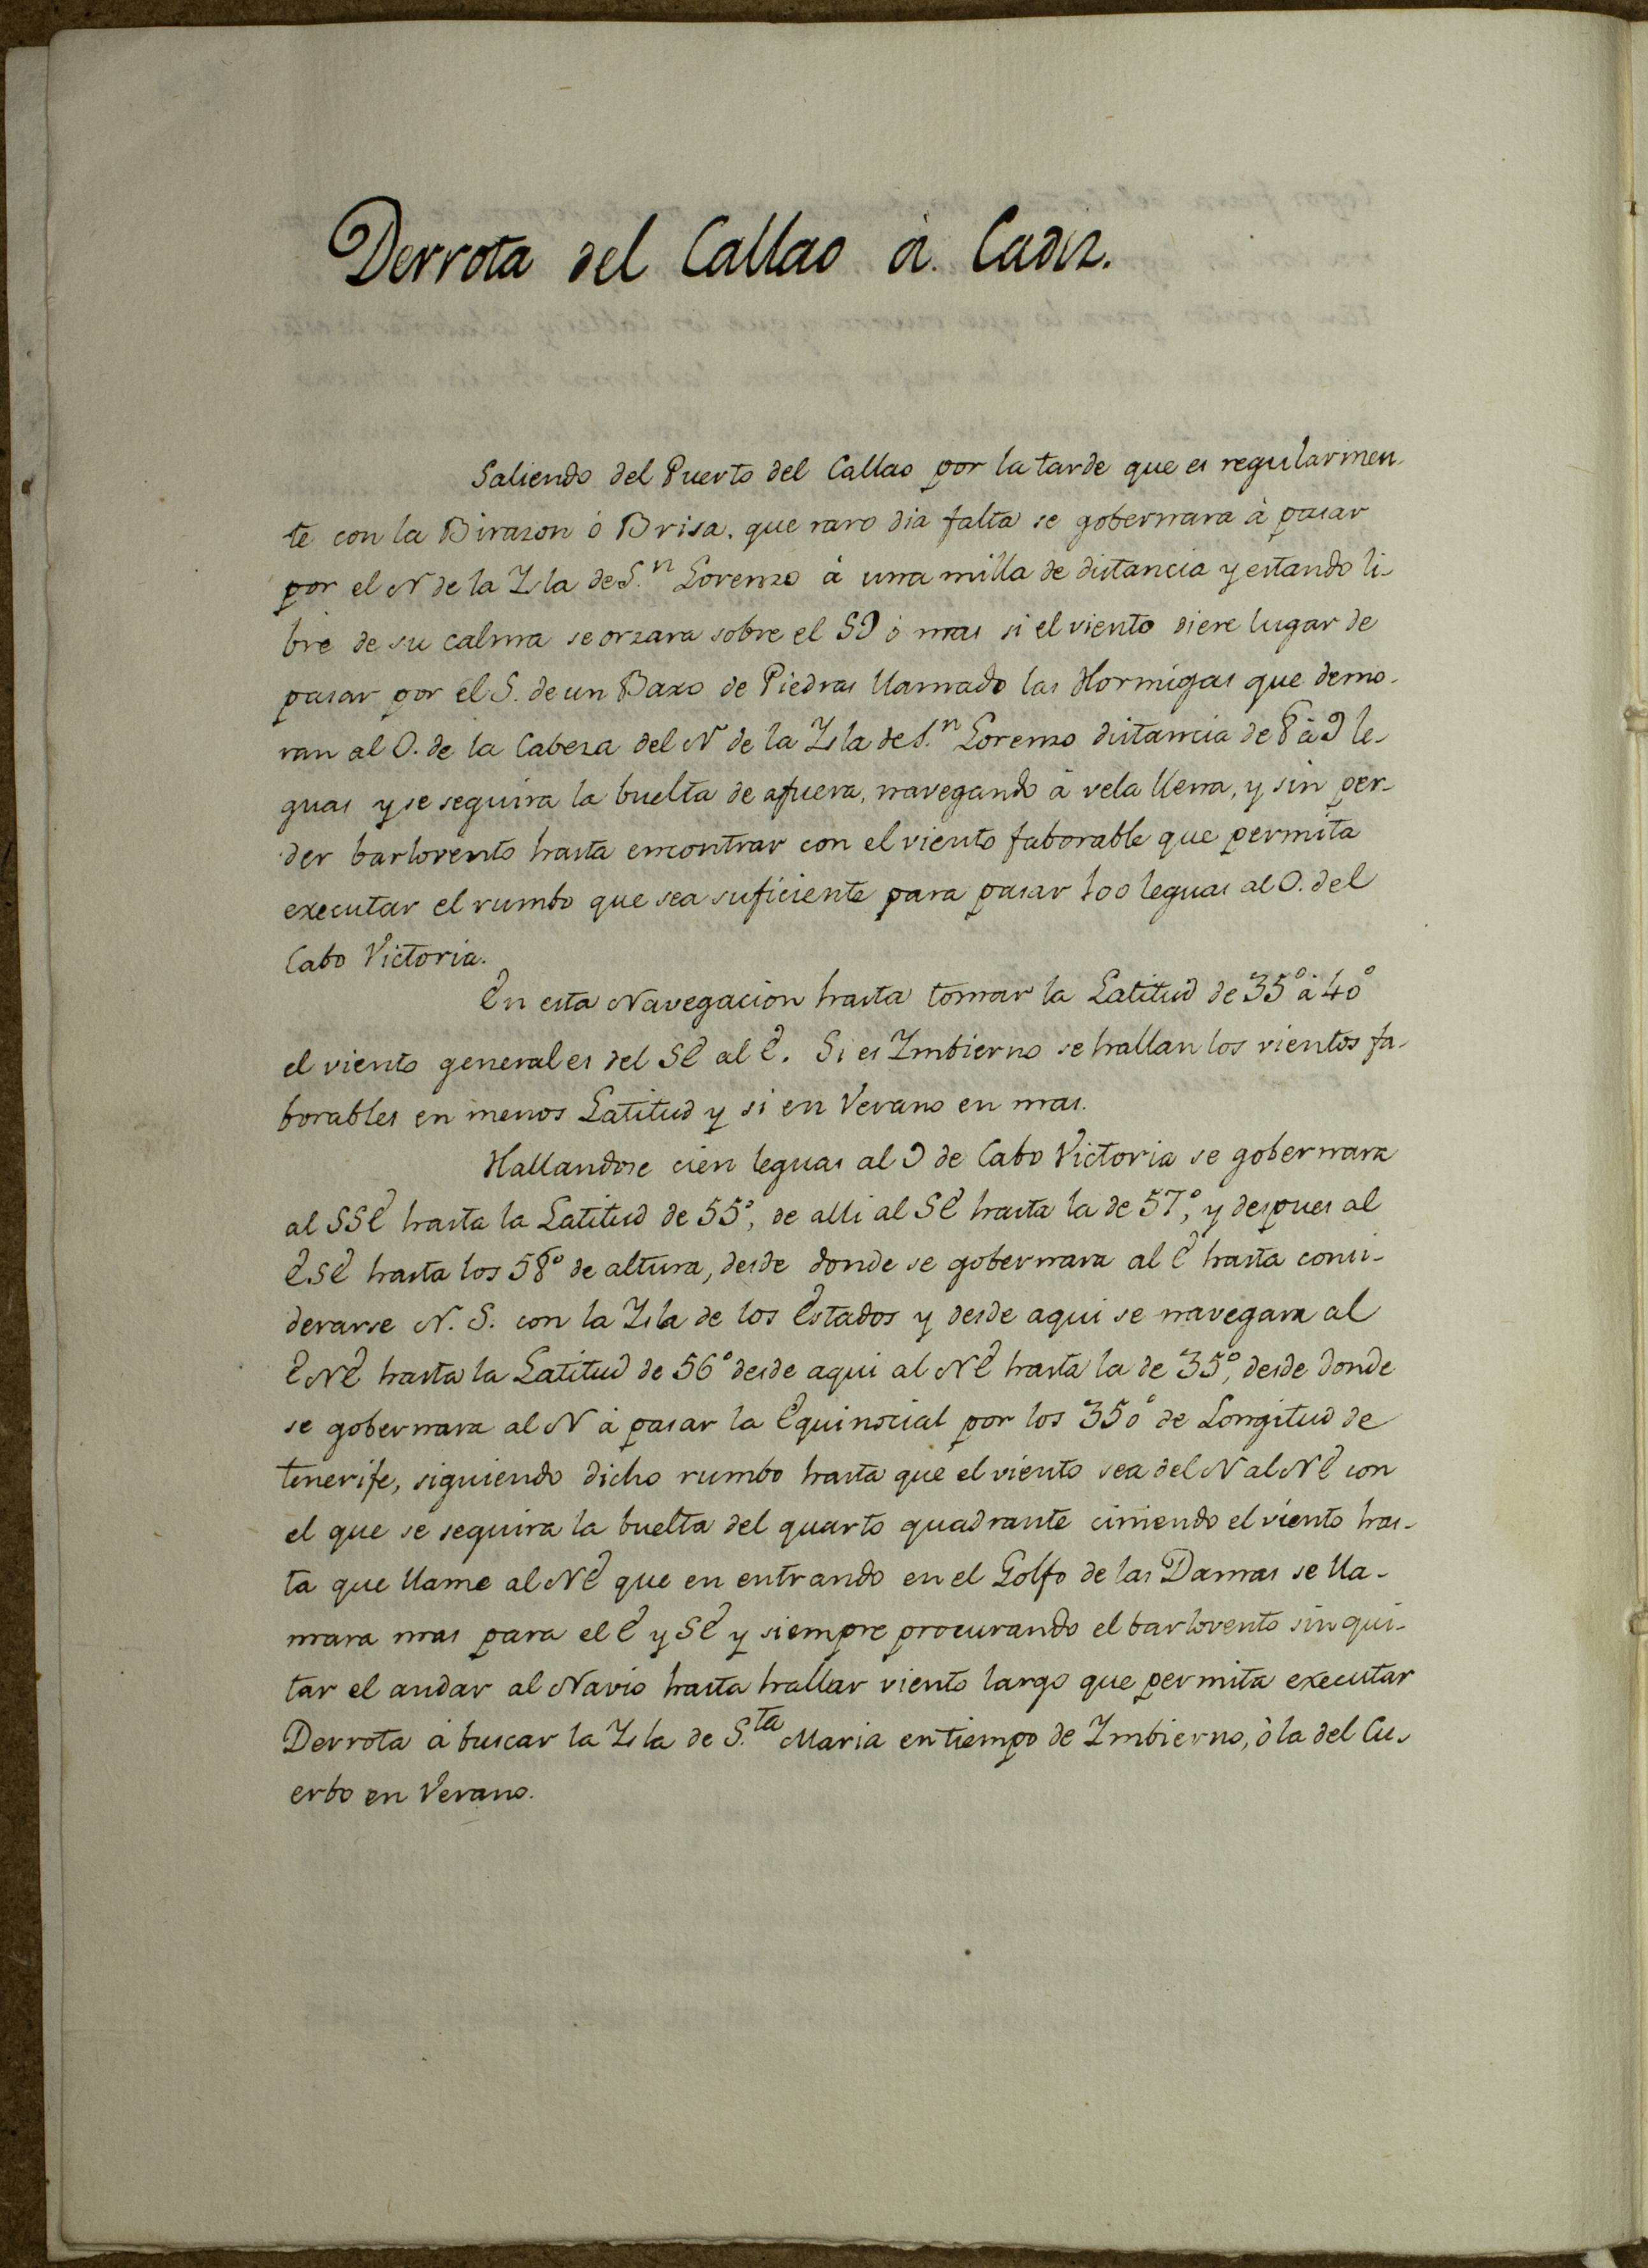 Derrota del Callao à Cadiz.
Saliendo del Puerto del Callao por la tarde que es regularmen-
te con la Birazon ó Brisa, que raro dia falta se gobernara à pasar
por el N de la Isla de S.n Lorenzo à una milla de distancia y estando li-
bre de su calma se orzara sobre el SO ò mas si el viento diere lugar de
pasar por el S. de un Baxo de Piedras llamado las Hormigas que demo-
ran al O. de la Cabeza del N de la Isla de S.n Lorenzo distancia de 8 à 9 le-
guas y se seguira la buelta de afuera, navegando à vela llena, y sin per-
der barlovento hasta encontrar con el viento faborable que permita
executar el rumbo que sea suficiente para pasar 100 leguas al O. del
Cabo Victoria.
En esta Navegacion hasta tomar la Latitud de 35° à 40°
el viento general es del SE al E. Si es Imbierno se hallan los vientos fa-
borables en menos Latitud y si en Verano en mas.
Hallandose cien leguas al O de Cabo Victoria se gobernara
al SSE hasta la Latitud de 55°, de alli al SE hasta la de 57°, y despues al
ESE hasta los 58° de altura, desde donde se gobernara al E hasta consi-
derarse N. S. con la Isla de los Estados y desde aqui se navegara al
ENE hasta la Latitud de 56° desde aqui al NE hasta la de 35°, desde donde
se gobernara al N à pasar la Equinocial por los 350° de Longitud de
tenerife, siguiendo dicho rumbo hasta que el viento sea del N al NE con
el que se seguira la buelta del quarto quadrante ciniendo el viento has-
ta que llame al NE que en entrando en el Golfo de las Damas se lla-
mara mas para el E y SE y siempre procurando el barlovento sin qui-
tar el andar al Navio hasta hallar viento largo que permita executar
Derrota à buscar la Isla de S.ta Maria en tiempo de Imbierno, ò la del Cu-
erbo en Verano.